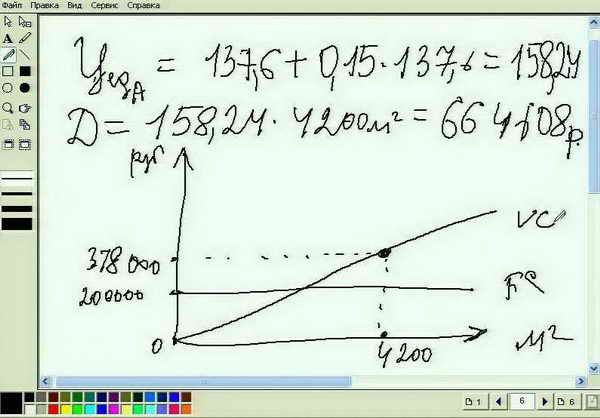 Файл Правка Вид Сервис Справка
Ц ед А = 137,6 + 0,15 · 137,6 = 158,24
D = 158,24 · 4200 м² = 664608 р.
руб
VC
378 000
200000
FC
0
4200
м²
1
6
6